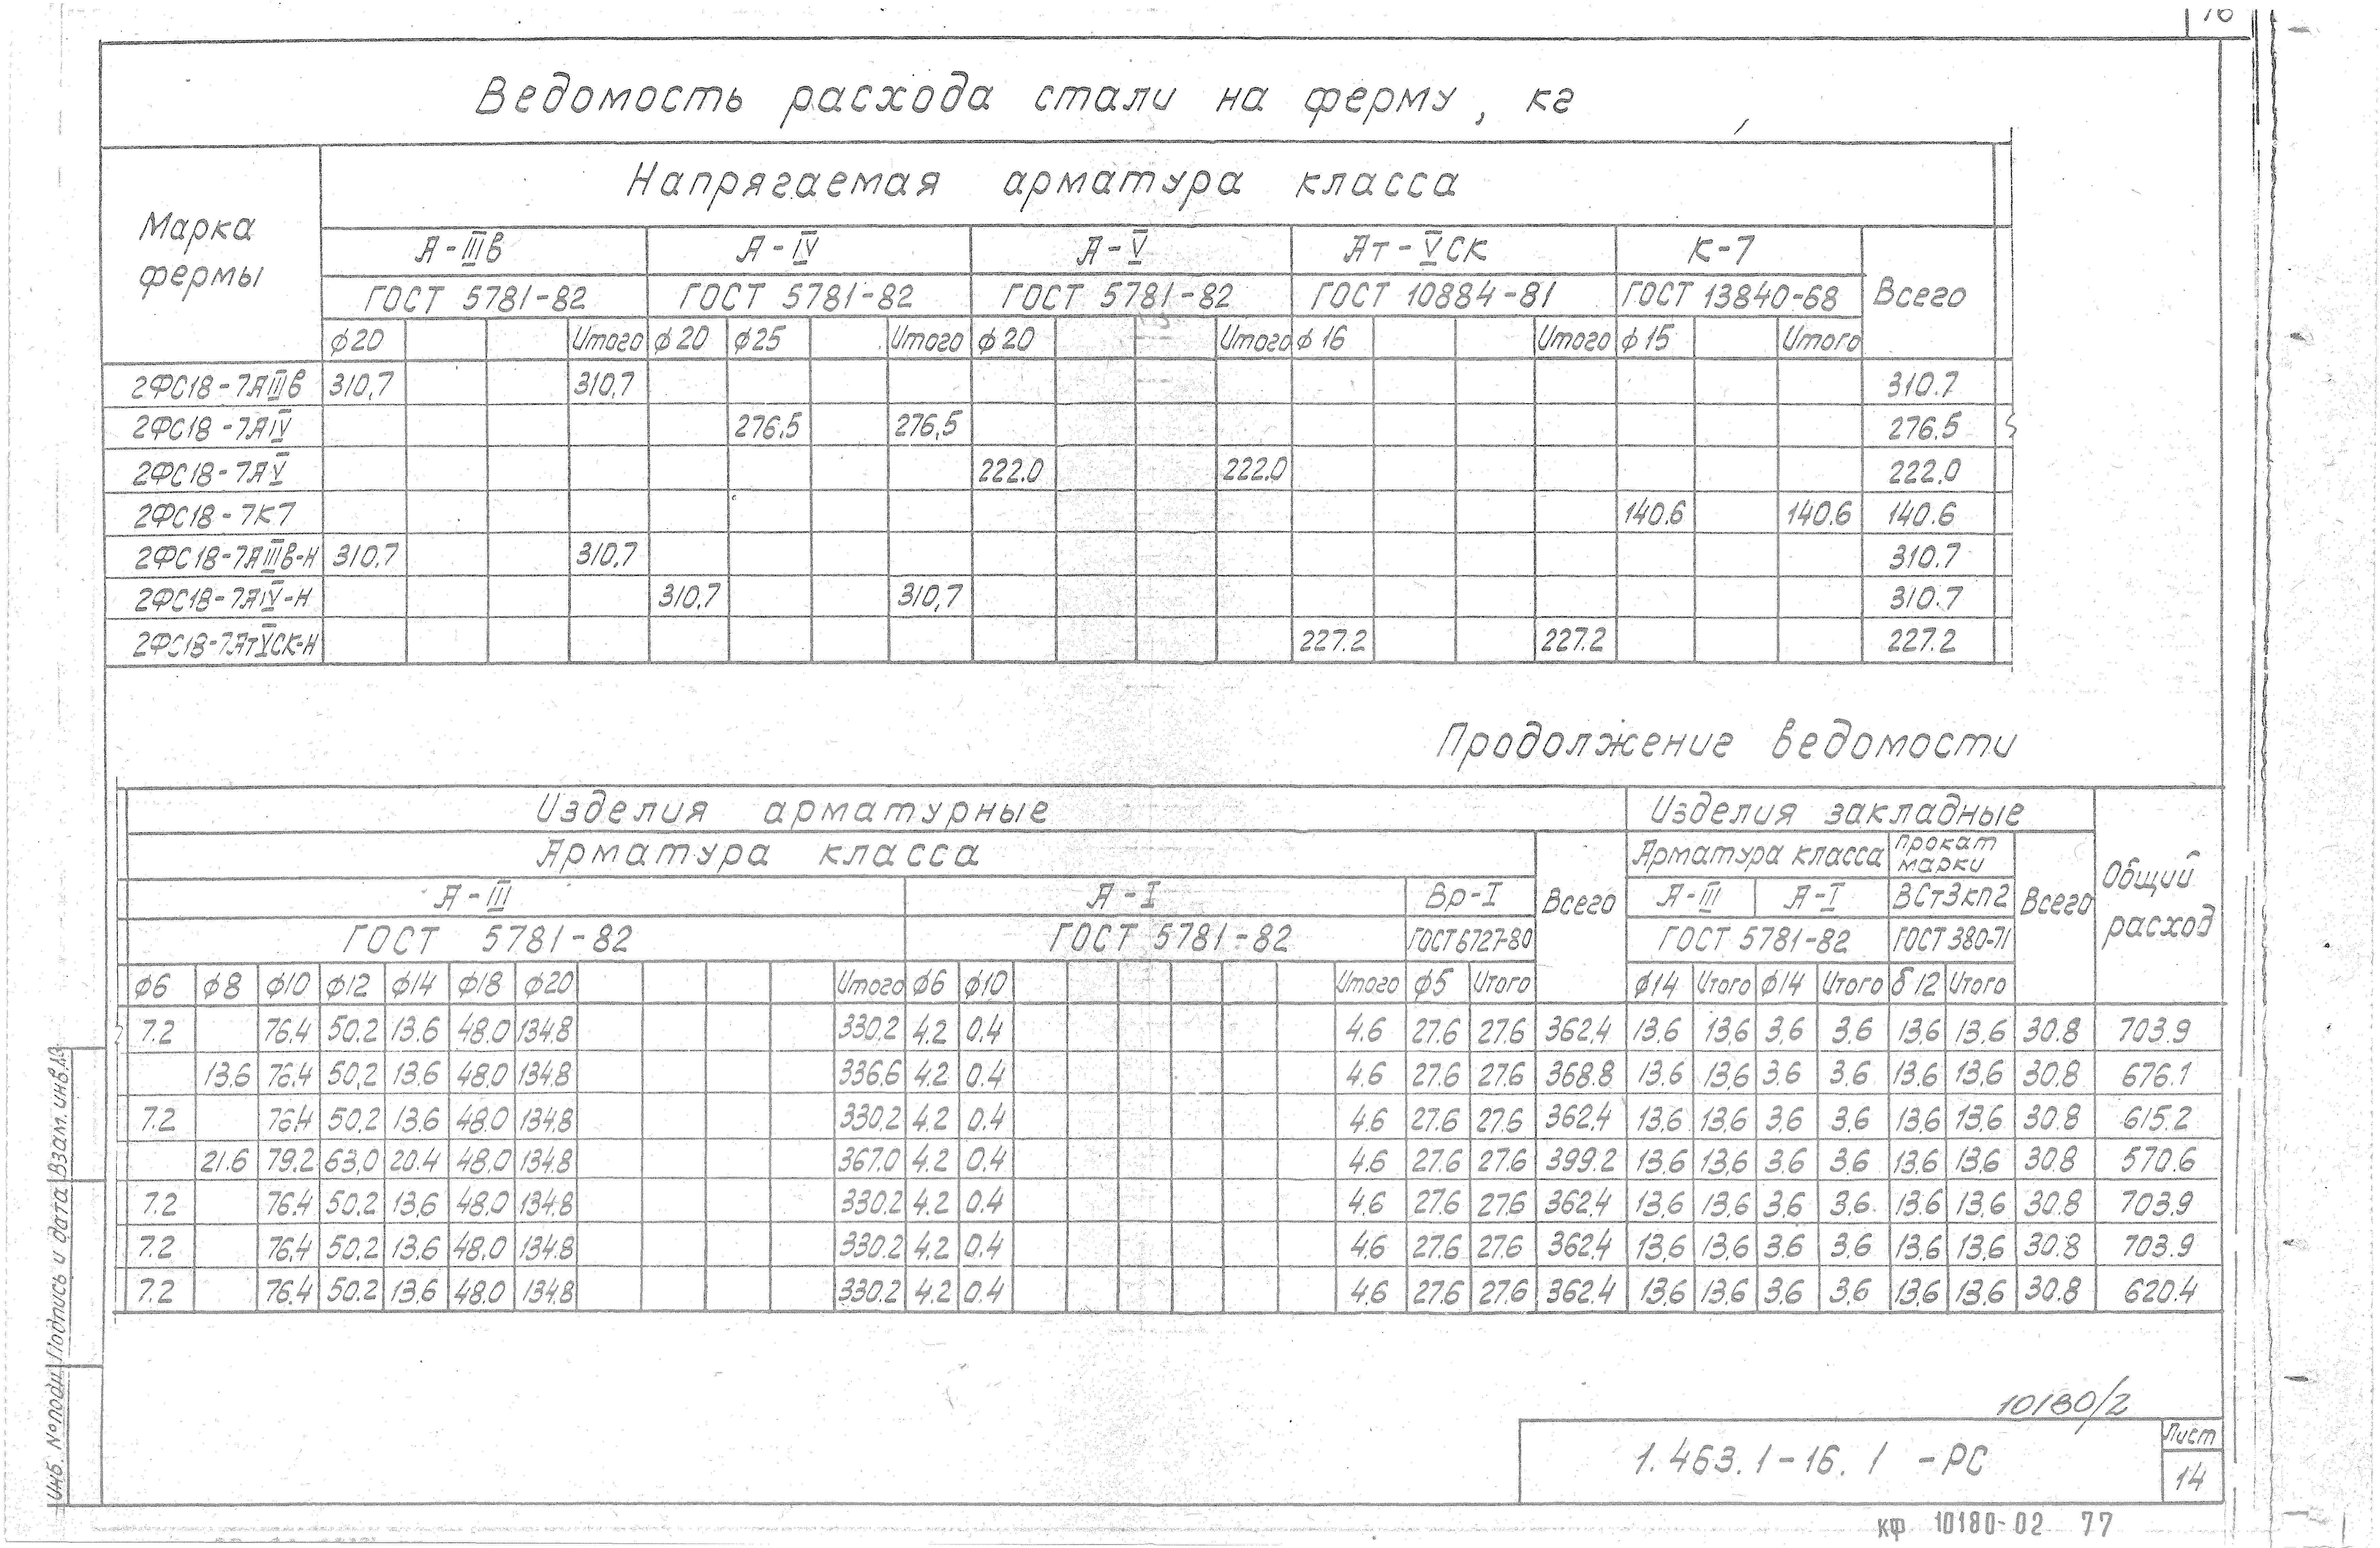 76
Ведомость расхода стали на ферму, кг
Марка фермы
Напрягаемая арматура класса
А-IIIв А-IV А-V Ат-VСК К-7 Всего
ГОСТ 5781-82 ГОСТ 5781-82 ГОСТ 5781-82 ГОСТ 10884-81 ГОСТ 13840-68
ф20 Итого ф20 ф25 Итого ф20 Итого ф16 Итого ф15 Итого
2ФС18-7АIIIв 310,7 310,7 310.7
2ФС18-7АIV 276.5 276,5 276.5
2ФС18-7АV 222.0 222.0 222.0
2ФС18-7К7 140.6 140.6 140.6
2ФС18-7АIIIв-Н 310.7 310,7 310.7
2ФС18-7АIV-Н 310.7 310,7 310.7
2ФС18-7АтVСК-Н 227.2 227.2 227.2
Продолжение ведомости
Изделия арматурные Изделия закладные Общий расход
Арматура класса Всего Арматура класса Прокат марки Всего
А-III А-I Вр-I А-III А-I ВСт3кп2
ГОСТ 5781-82 ГОСТ 5781-82 ГОСТ 6727-80 ГОСТ 5781-82 ГОСТ 380-71
ф6 ф8 ф10 ф12 ф14 ф18 ф20 Итого ф6 ф10 Итого ф5 Итого ф14 Итого ф14 Итого δ12 Итого
7.2 76.4 50.2 13.6 48.0 134.8 330.2 4.2 0.4 4.6 27.6 27.6 362.4 13.6 13.6 3.6 3.6 13.6 13.6 30.8 703.9
13.6 76.4 50,2 13.6 48.0 134.8 336.6 4.2 0.4 4.6 27.6 27.6 368.8 13.6 13.6 3.6 3.6 13.6 13.6 30.8 676.1
7.2 76.4 50.2 13.6 48.0 134.8 330.2 4.2 0.4 4.6 27.6 27.6 362.4 13.6 13.6 3.6 3.6 13.6 13.6 30.8 615.2
21.6 79.2 63,0 20.4 48.0 134.8 367.0 4.2 0.4 4.6 27.6 27.6 399.2 13.6 13.6 3.6 3.6 13.6 13.6 30.8 570.6
7.2 76.4 50.2 13.6 48.0 134.8 330.2 4.2 0.4 4.6 27.6 27.6 362.4 13.6 13.6 3.6 3.6 13.6 13.6 30.8 703.9
7.2 76.4 50.2 13.6 48.0 134.8 330.2 4.2 0.4 4.6 27.6 27.6 362.4 13.6 13.6 3.6 3.6 13.6 13.6 30.8 703.9
7.2 76.4 50.2 13.6 48.0 134.8 330.2 4.2 0.4 4.6 27.6 27.6 362.4 13.6 13.6 3.6 3.6 13.6 13.6 30.8 620.4
Инв. № подл. Подпись и дата Взам. инв. №
10180/2
1.463.1-16.1 -РС
Лист
14
КФ 10180-02 77